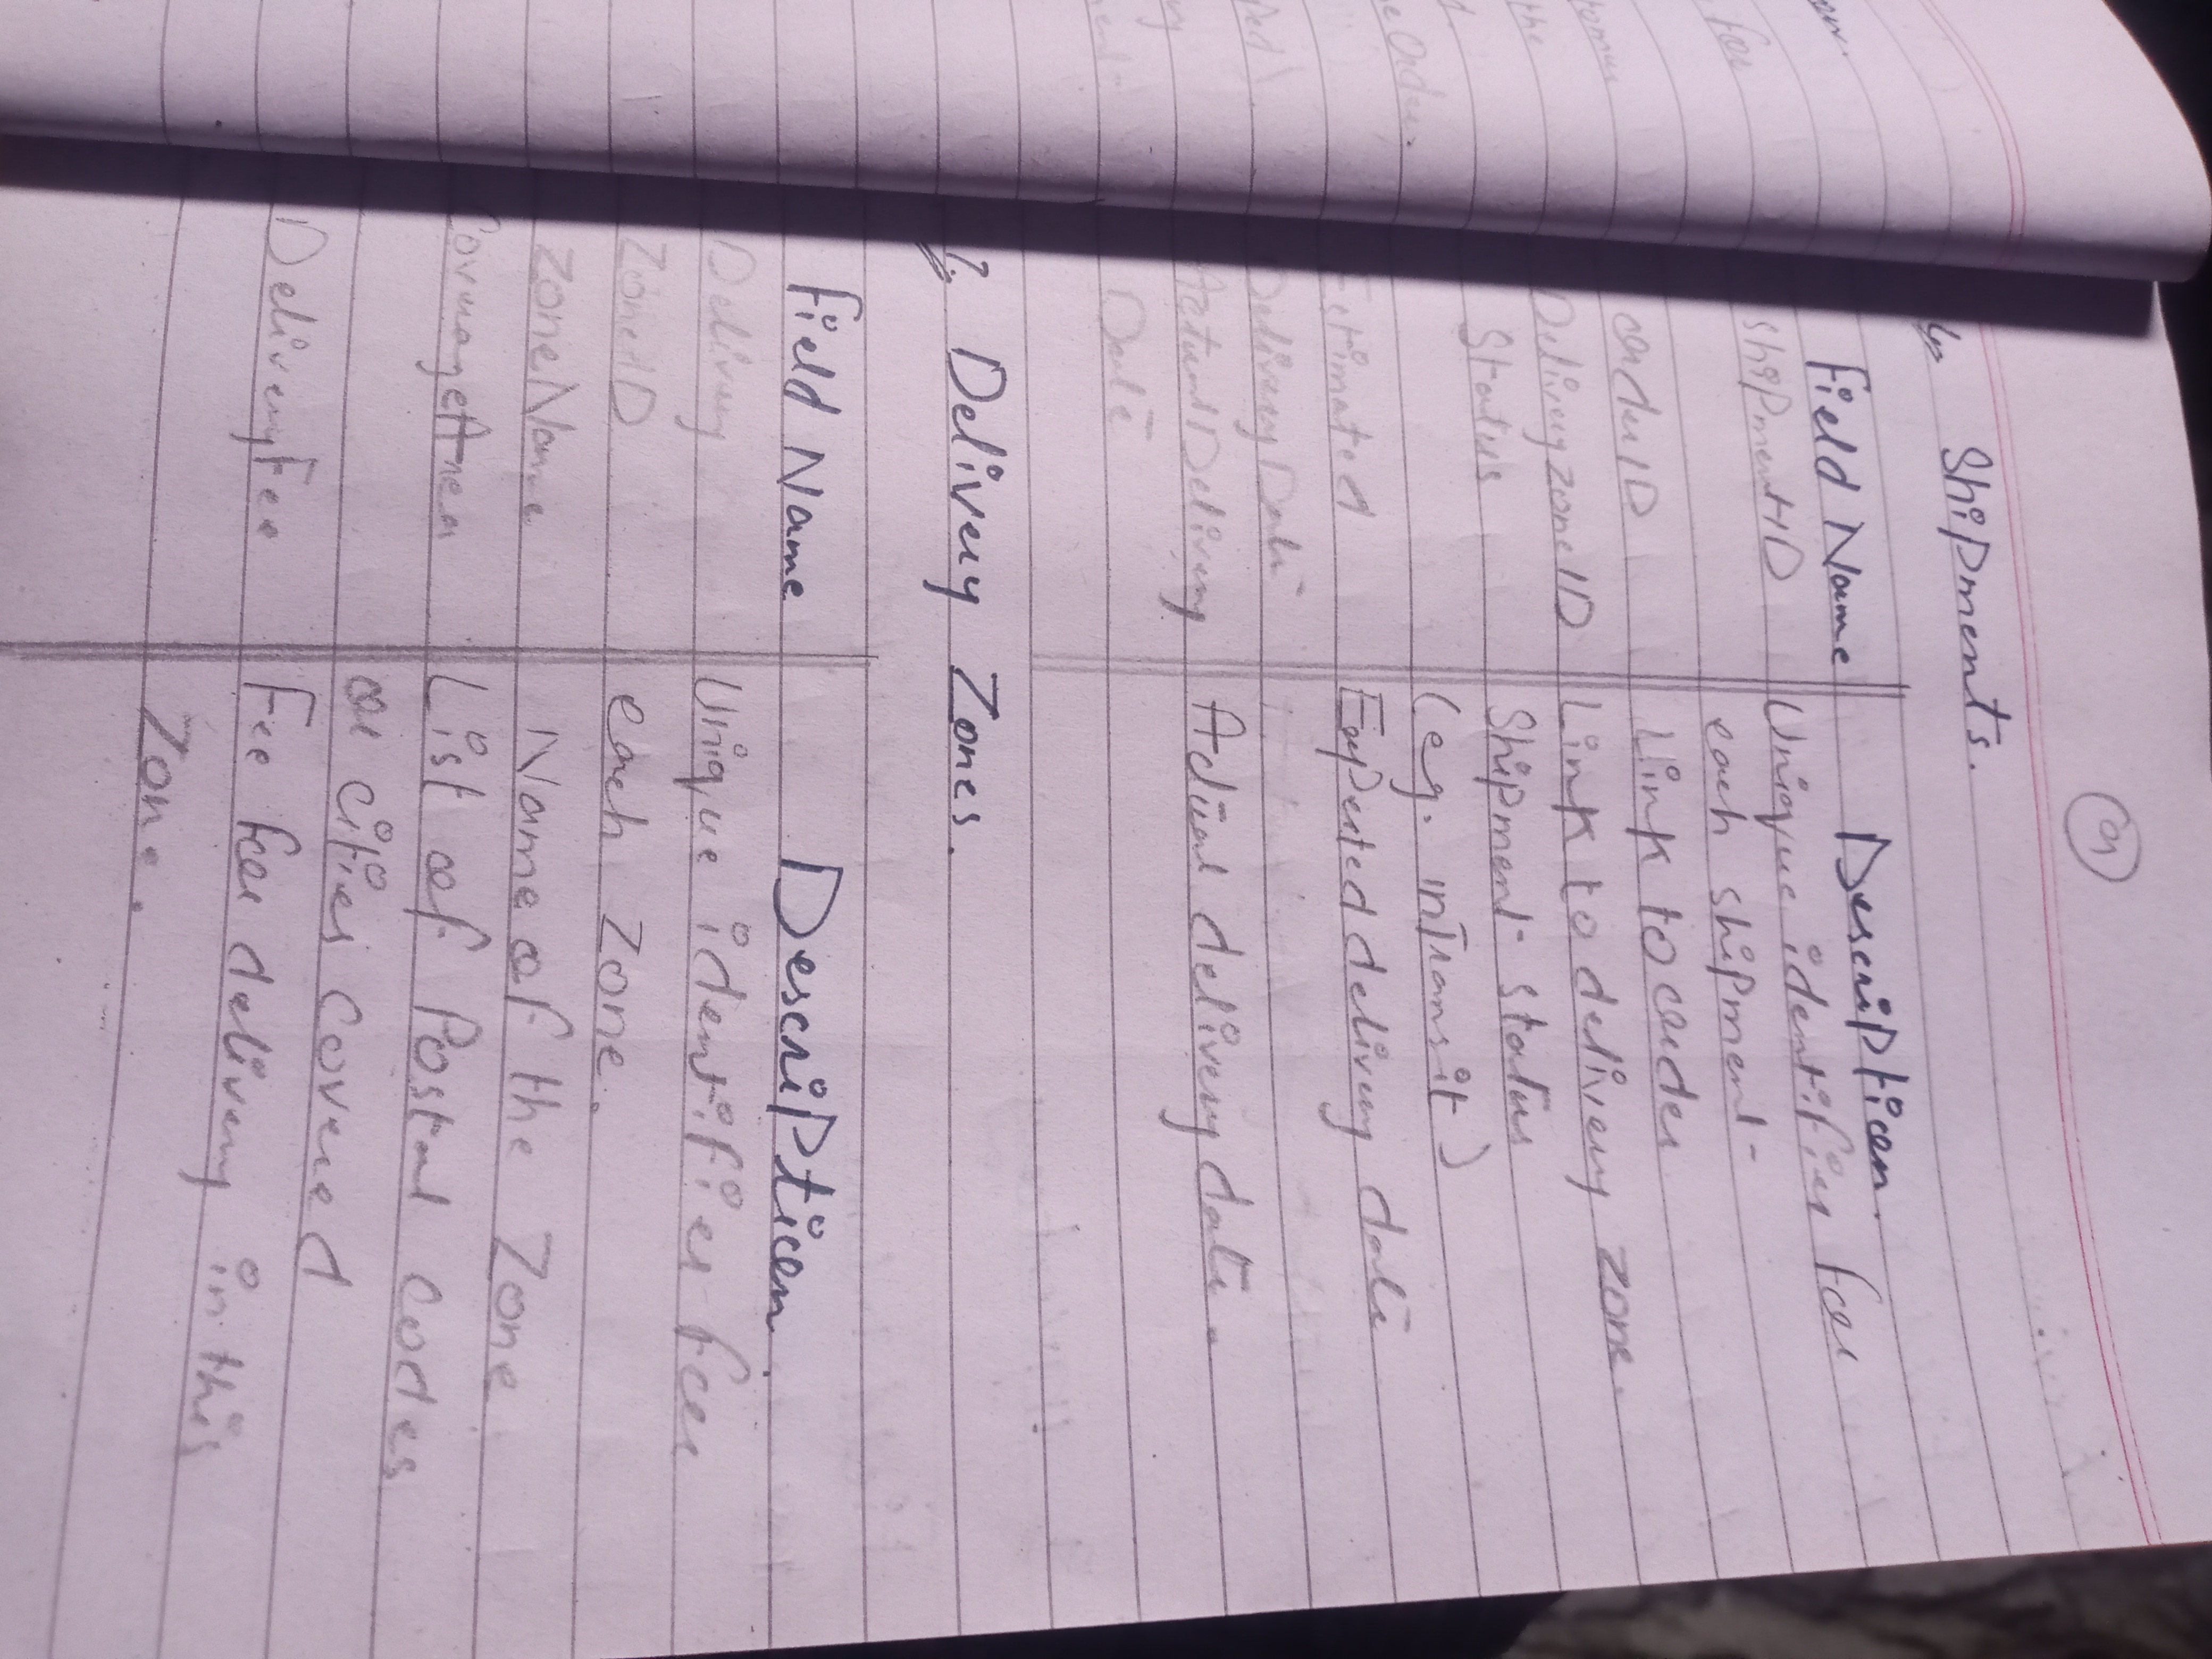 Shipments.
Field Name Description.
ShipmentID Unique identifier for
each shipment
orderID Link to order
DeliveryZoneID Link to delivery zone.
Status Shipment status
(eg. inTransit)
Estimated Expected delivery date
Delivery Date
Actual Delivery Actual delivery date.
Date
7. Delivery Zones.
Field Name Description.
Delivery Unique identifier for
ZoneID each zone.
ZoneName Name of the zone
CoverageArea List of Postal codes
or cities covered
DeliveryFee Fee for delivery in this
Zone.